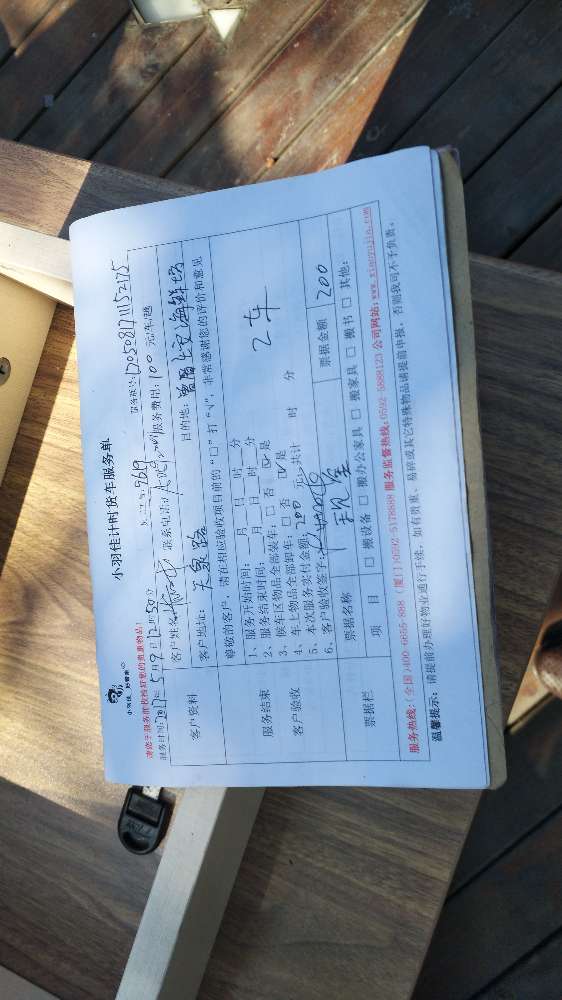 小羽佳计时货车服务单
小羽佳
请您于服务前收检好您的贵重物品!
服务时间:2022年5月9日12时50分
服务费用:100元/车/趟
客户资料
客户姓名:
联系电话:
客户地址:天泉路
目的地:
服务结束
客户验收
尊敬的客户,请在相应验收项目前的“□”打“√”,非常感谢您的评价和意见
1、服务开始时间: 月 日 时 分
2、服务结束时间: 月 日 时 分
3、候车区物品全部装车:□否 ☑是
4、车上物品全部卸车:□否 ☑是
5、本次服务实付金额:200元,共计 时 分
6、客户验收签字:
2车
票据栏
票据名称
票据金额
200
项 目
□搬设备 □搬办公家具 □搬家具 □搬书 □其他:
服务热线:(全国)400-6655-888 (厦门)0592-5178888 服务监督热线:0592-5888123 公司网站:www.xiaoyujia.com
温馨提示:请提前办理好物业通行手续,如有贵重、易碎或其它特殊物品请提前申报,否则我司不予负责。